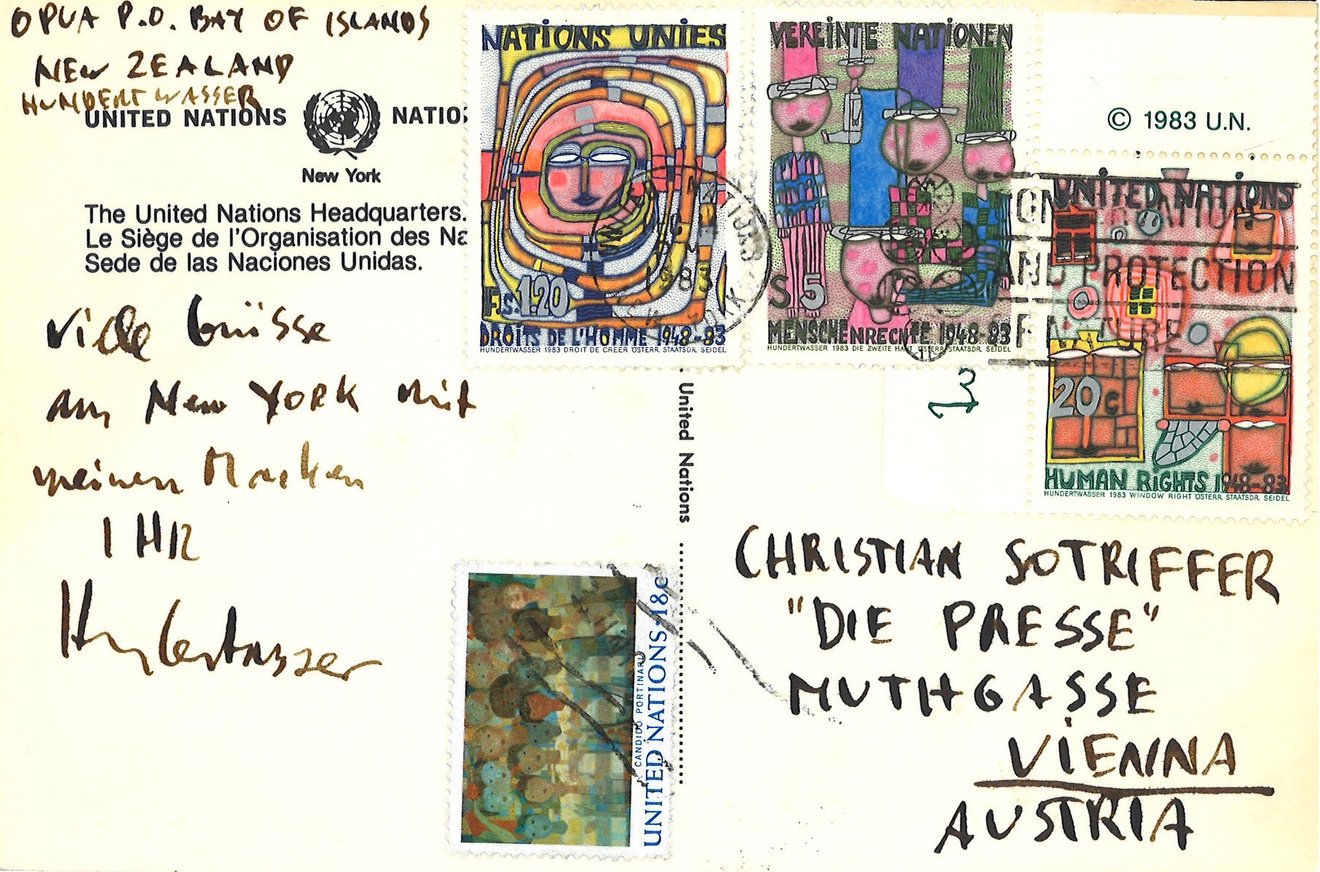 OPUA P.O. BAY OF ISLANDS
NEW ZEALAND
HUNDERTWASSER
UNITED NATIONS NATIO
New York
The United Nations Headquarters.
Le Siège de l'Organisation des Na
Sede de las Naciones Unidas.
Viele Grüsse
aus New YORK mit
meinen Marken
IHR
Hundertwasser
NATIONS UNIES
F.s. 1.20
DROITS DE L'HOMME 1948-83
HUNDERTWASSER 1983 DROIT DE CREER ÖSTERR. STAATSDR. SEIDEL
VEREINTE NATIONEN
S 5
MENSCHENRECHTE 1948-83
HUNDERTWASSER 1983 DIE ZWEITE HAUT ÖSTERR. STAATSDR. SEIDEL
© 1983 U.N.
UNITED NATIONS
20 c
HUMAN RIGHTS 1948-83
HUNDERTWASSER 1983 WINDOW RIGHT ÖSTERR. STAATSDR. SEIDEL
AND PROTECTION
NATURE
United Nations
CANDIDO PORTINARI
UNITED NATIONS·18c
CHRISTIAN SOTRIFFER
"DIE PRESSE"
MUTHGASSE
VIENNA
AUSTRIA